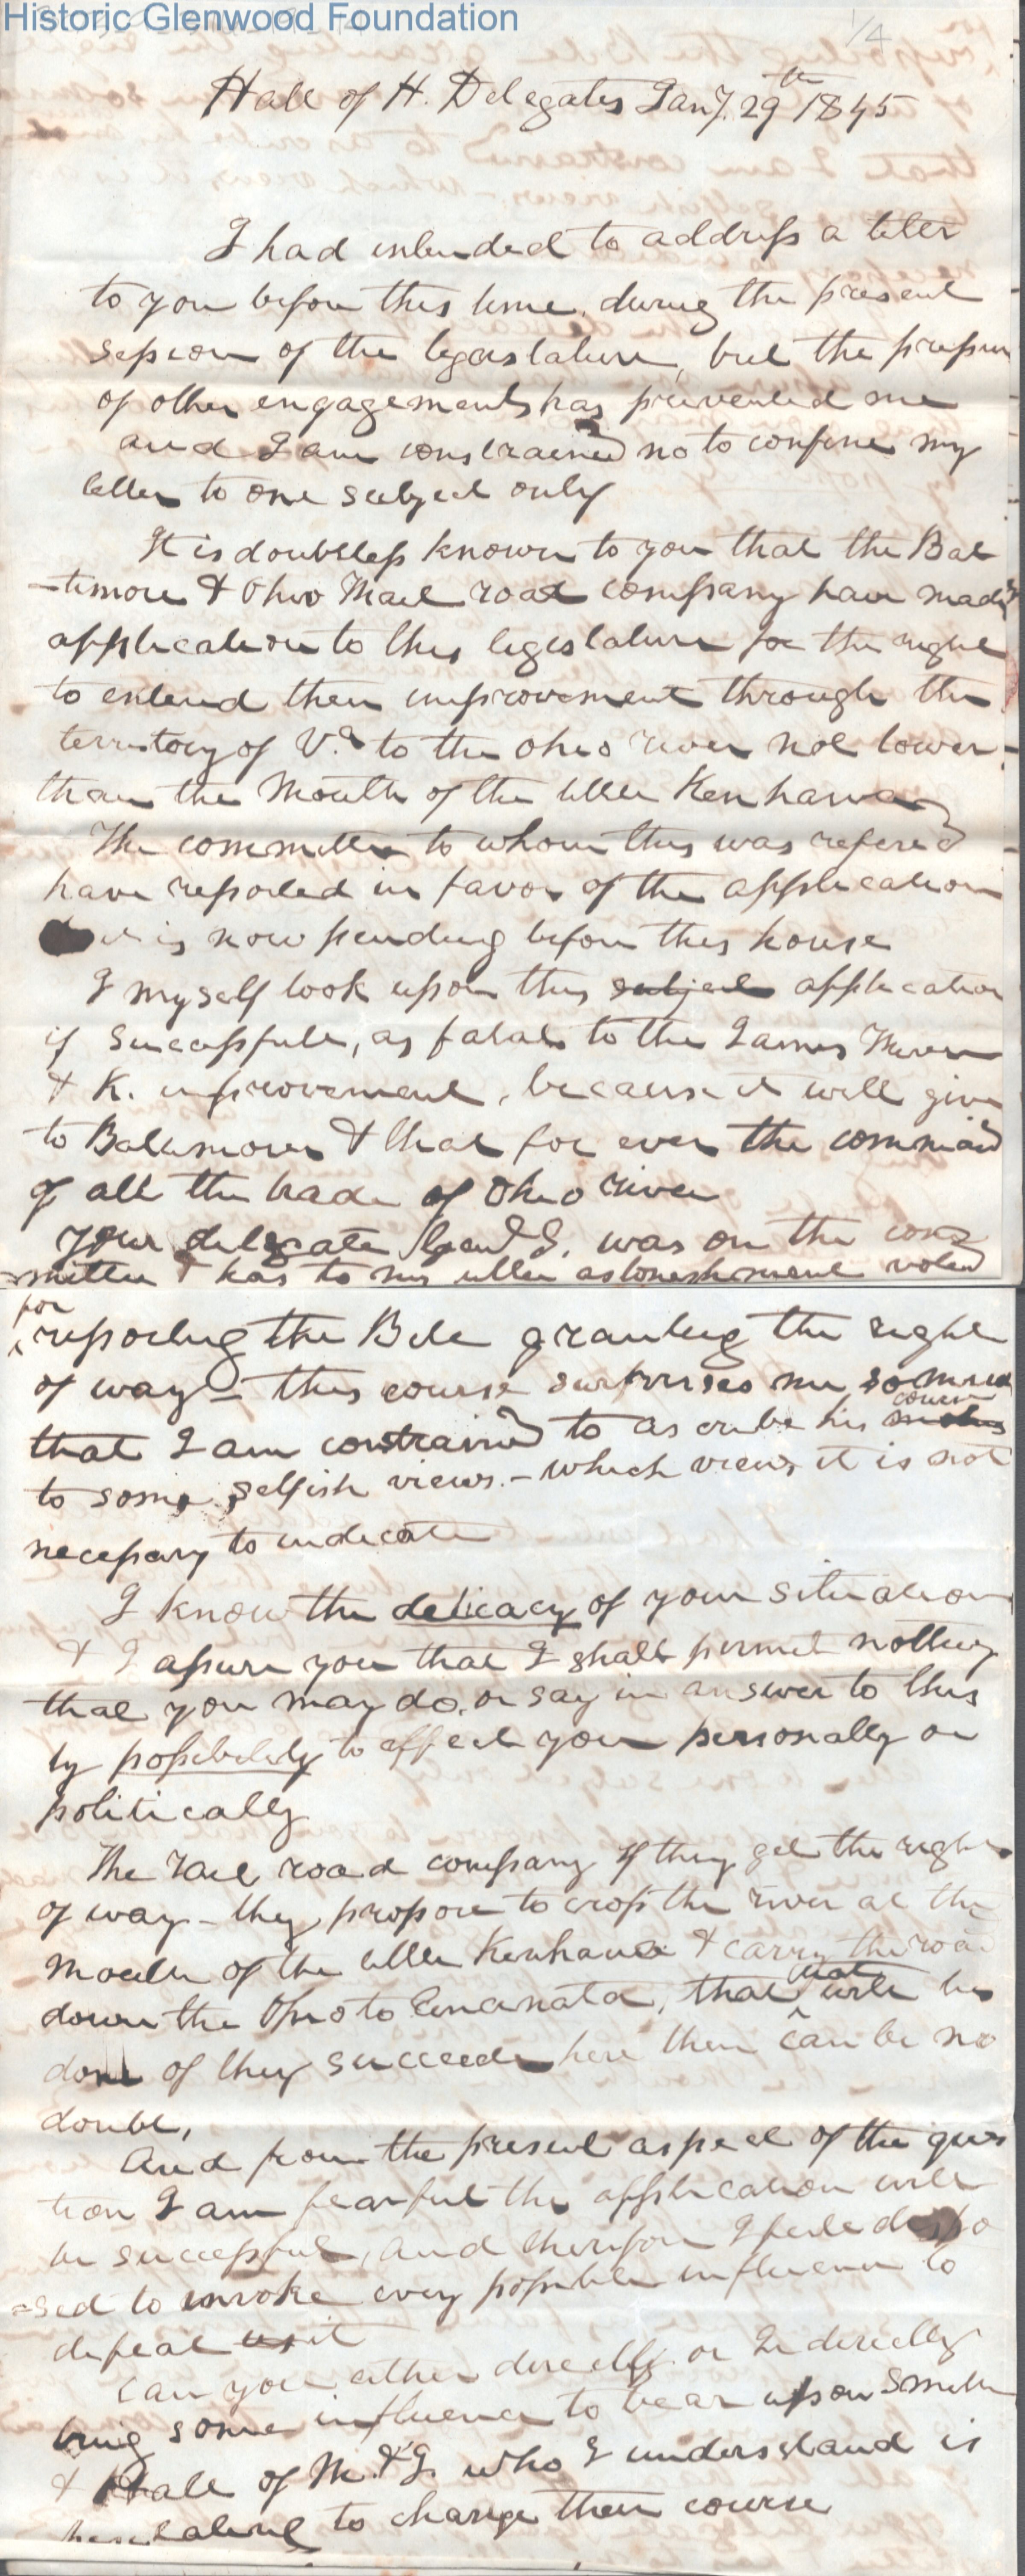 Historic Glenwood Foundation
1/4
Hall of H. Delegates Jany. 29th 1845
I had intended to address a letter
to you before this time, during the present
session of the legislature, but the pressure
of other engagements has prevented me
and I am constrained no to confine my
letter to one subject only
It is doubtless known to you that the Bal
-timore & Ohio Rail road company have made
application to this legislature for the right
to extend their improvement through the
territory of Va to the Ohio river not lower
than the Mouth of the little Kenhawa
The committee to whom this was refered
have reported in favor of the application
it is now pending before this house
I myself look upon this subject application
if successful, as fatal to the James River
& K. improvement, because it will give
to Baltimore & that for ever the command
of all the trade of Ohio river
Your delegate S. was on the com
mittee & has to my utter astonishment voted
for
reporting the Bill granting the right
of way - this course surprises me so much
course
that I am constrained to ascribe his
to some selfish views - which views it is not
necessary to indicate
I know the delicacy of your situation
& I assure you that I shall permit nothing
that you may do, or say in answer to this
by possibility to affect you personally or
politically
The rail road company if they get the right
of way - they propose to cross the river at the
mouth of the little Kenhawa & carry the road
that
down the Ohio to Cincinnata, that will be
done if they succeed here there can be no
doubt,
And from the present aspect of the ques
tion I am fearful the application will
be successful, and therefore I feele dispo
-sed to invoke every possible influence to
defeat it
Can you either directly or Indirectly
bring some influence to bear upon Smith
& Hall of M. & J. who I understand is
hesitating to change their course